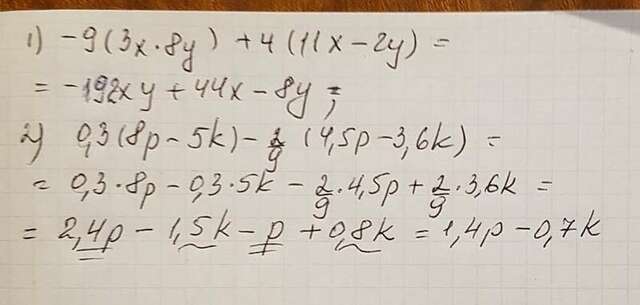 1) -9(3x·8y) + 4(11x - 2y) =
= -192xy + 44x - 8y;
2) 0,3(8p - 5k) - 2/9 (4,5p - 3,6k) =
= 0,3·8p - 0,3·5k - 2/9·4,5p + 2/9·3,6k =
= 2,4p - 1,5k - p + 0,8k = 1,4p - 0,7k